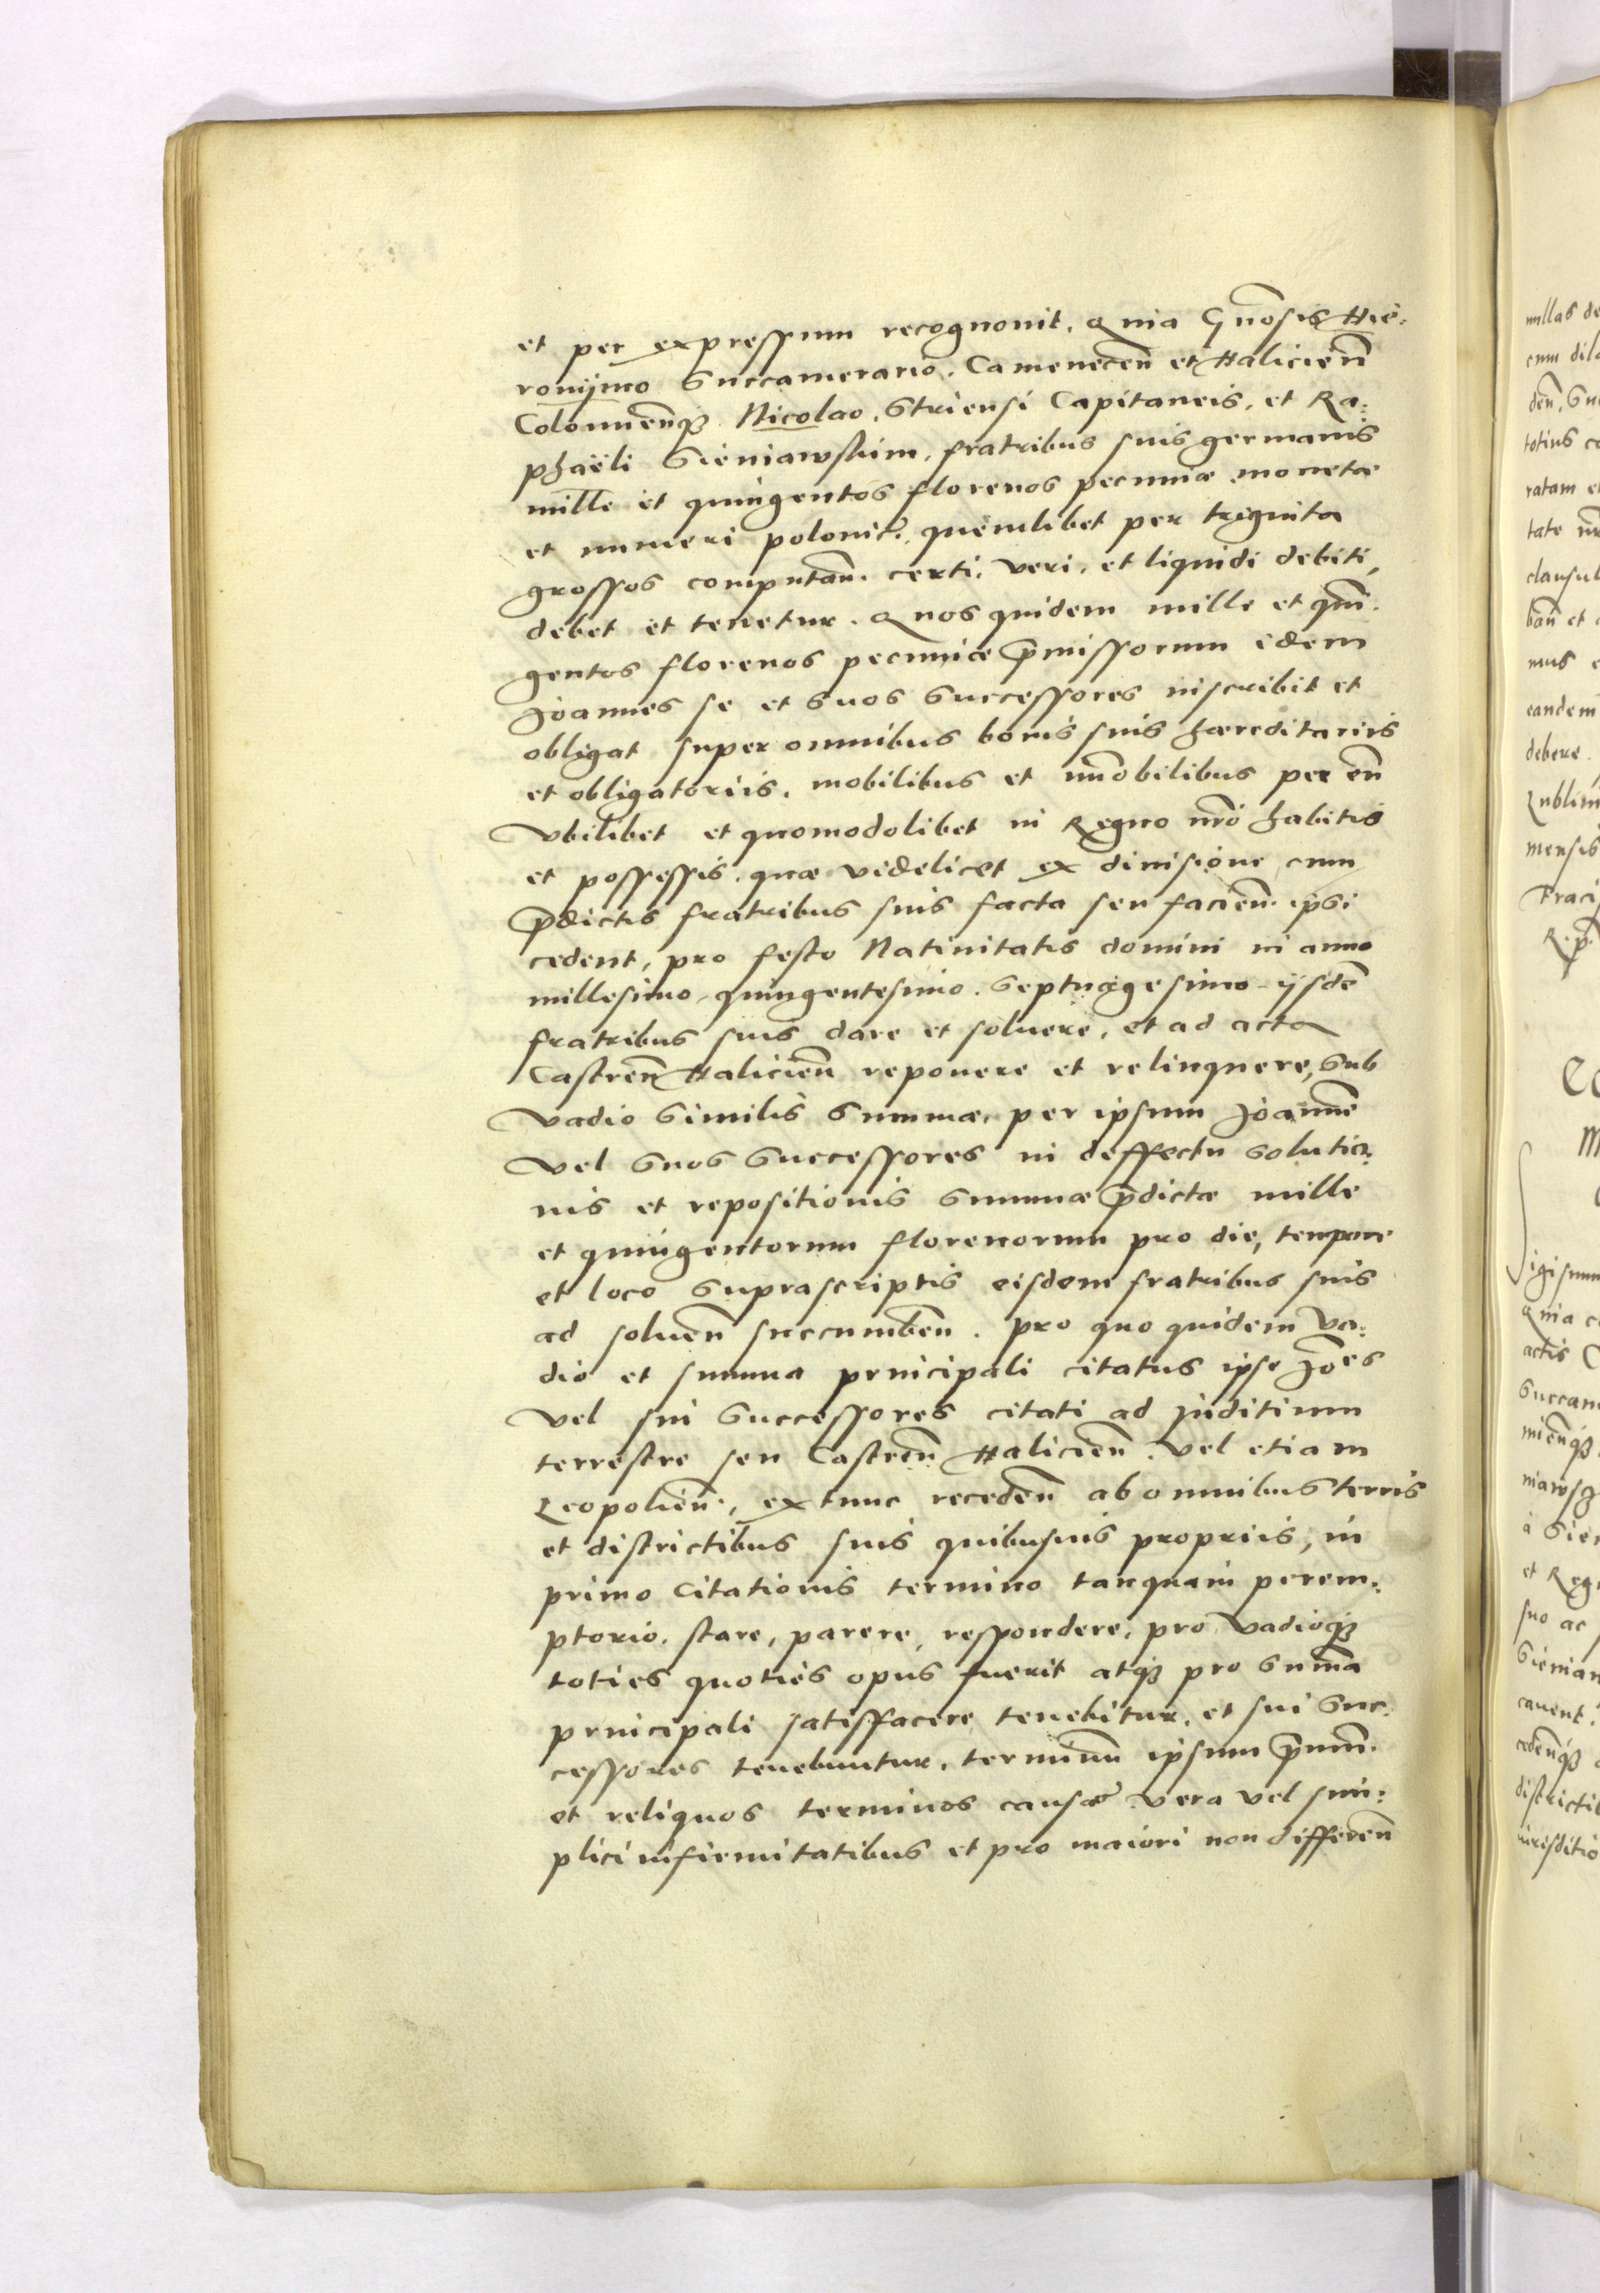 et per expressum recognovit. Quia Gn̄osis Hie:
ronijmo Succamerario. Camenecen̄ et Halicien̄
Colomien̄q3 Nicolao, Striensi Capitaneis, et Ra:
phaëli Sieniawskim, fratribus suis germanis
mille et quingentos florenos pecuniæ monetæ
et numeri polonic̄. quemlibet per triginta
grossos computan̄. certi, veri, et liquidi debiti,
debet et tenetur. Quos quidem mille et quin̄:
gentos florenos pecuniæ p̄missorum idem
Joannes se et suos Successores inscribit et
obligat super omnibus bonis suis hæreditariis
et obligatoriis, mobilibus et im̄obilibus per eū
Vbilibet et quomodolibet in Regno nr̄o habitis
et possessis. quæ videlicet ex divisione cum
p̄dictis fratribus suis facta seu facien̄. ipsi
cedent, pro festo Nativitatis domini in anno
millesimo quingentesimo. Septuagesimo ijsdē
fratribus suis dare et soluere, et ad acta
Castren̄ Halicien̄ reponere et relinquere, sub
Vadio Similis Summæ, per ipsum Joannē
Vel suos Successores in deffectu Solutio:
nis et repositionis Summæ p̄dictæ mille
et quingentorum florenorum pro die, tempore
et loco Suprascriptis eisdem fratribus suis
ad soluen̄ succumben̄. pro quo quidem Va:
dio et summa principali citatus ipse Joēs
Vel sui Successores citati ad Juditium
terrestre seu Castren̄ Halicien̄. Vel etiam
Leopolien̄., extunc receden̄ ab omnibus terris
et districtibus suis quibusuis propriis, in
primo Citationis termino tanquam perem:
ptorio. stare, parere, respondere, pro Vadioq3
toties quoties opus fuerit atq3 pro Sum̄a
principali satisffacere tenebitur, et sui Suc:
cessores tenebuntur, terminū ipsum p̄mum̄.
et reliquos terminos causæ vera vel sim:
plici infirmitatibus et pro maiori non differen̄